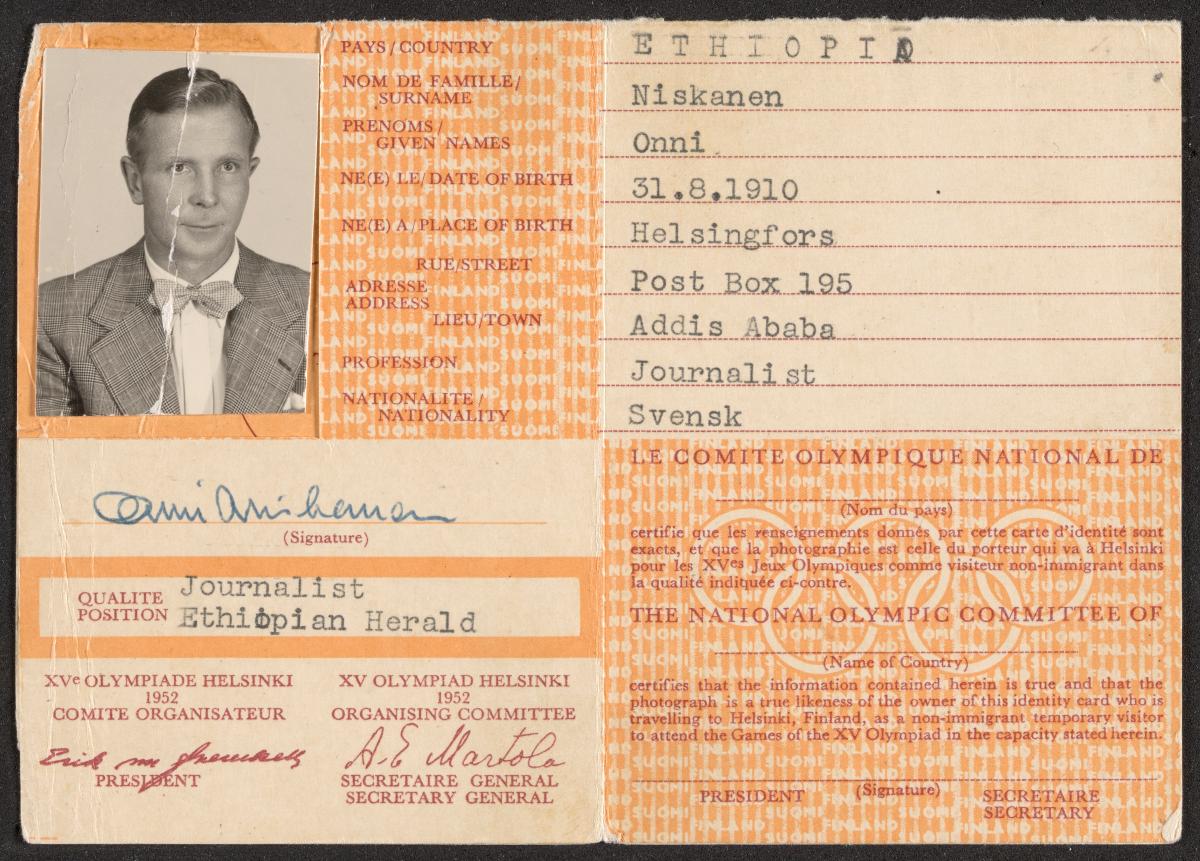 PAYS / COUNTRY
ETHIOPIA
NOM DE FAMILLE /
SURNAME
Niskanen
PRENOMS /
GIVEN NAMES
Onni
NE(E) LE / DATE OF BIRTH
31.8.1910
NE(E) A / PLACE OF BIRTH
Helsingfors
RUE/STREET
Post Box 195
ADRESSE
ADDRESS
LIEU/TOWN
Addis Ababa
PROFESSION
Journalist
NATIONALITE /
NATIONALITY
Svensk
Onni Niskanen
(Signature)
QUALITE
POSITION
Journalist
Ethiopian Herald
XVe OLYMPIADE HELSINKI
1952
COMITE ORGANISATEUR
PRESIDENT
XV OLYMPIAD HELSINKI
1952
ORGANISING COMMITTEE
A.E Martola
SECRETAIRE GENERAL
SECRETARY GENERAL
LE COMITE OLYMPIQUE NATIONAL DE
(Nom du pays)
certifie que les renseignements donnés par cette carte d'identité sont
exacts, et que la photographie est celle du porteur qui va à Helsinki
pour les XVes Jeux Olympiques comme visiteur non-immigrant dans
la qualité indiquée ci-contre.
THE NATIONAL OLYMPIC COMMITTEE OF
(Name of Country)
certifies that the information contained herein is true and that the
photograph is a true likeness of the owner of this identity card who is
travelling to Helsinki, Finland, as a non-immigrant temporary visitor
to attend the Games of the XV Olympiad in the capacity stated herein.
PRESIDENT
(Signature)
SECRETAIRE
SECRETARY